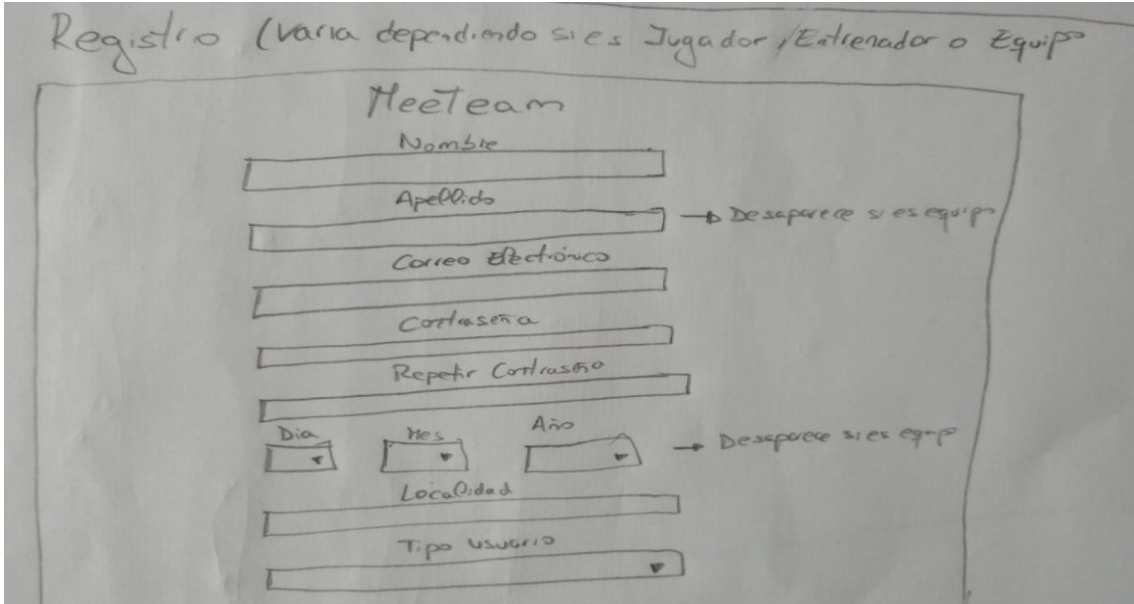 Registro (varia dependiendo si es Jugador/Entrenador o Equipo
MeeTeam
Nombre
Apellido
→ Desaparece si es equipo
Correo Electrónico
Contraseña
Repetir Contraseña
Dia Mes Año
→ Desaparece si es equipo
Localidad
Tipo usuario